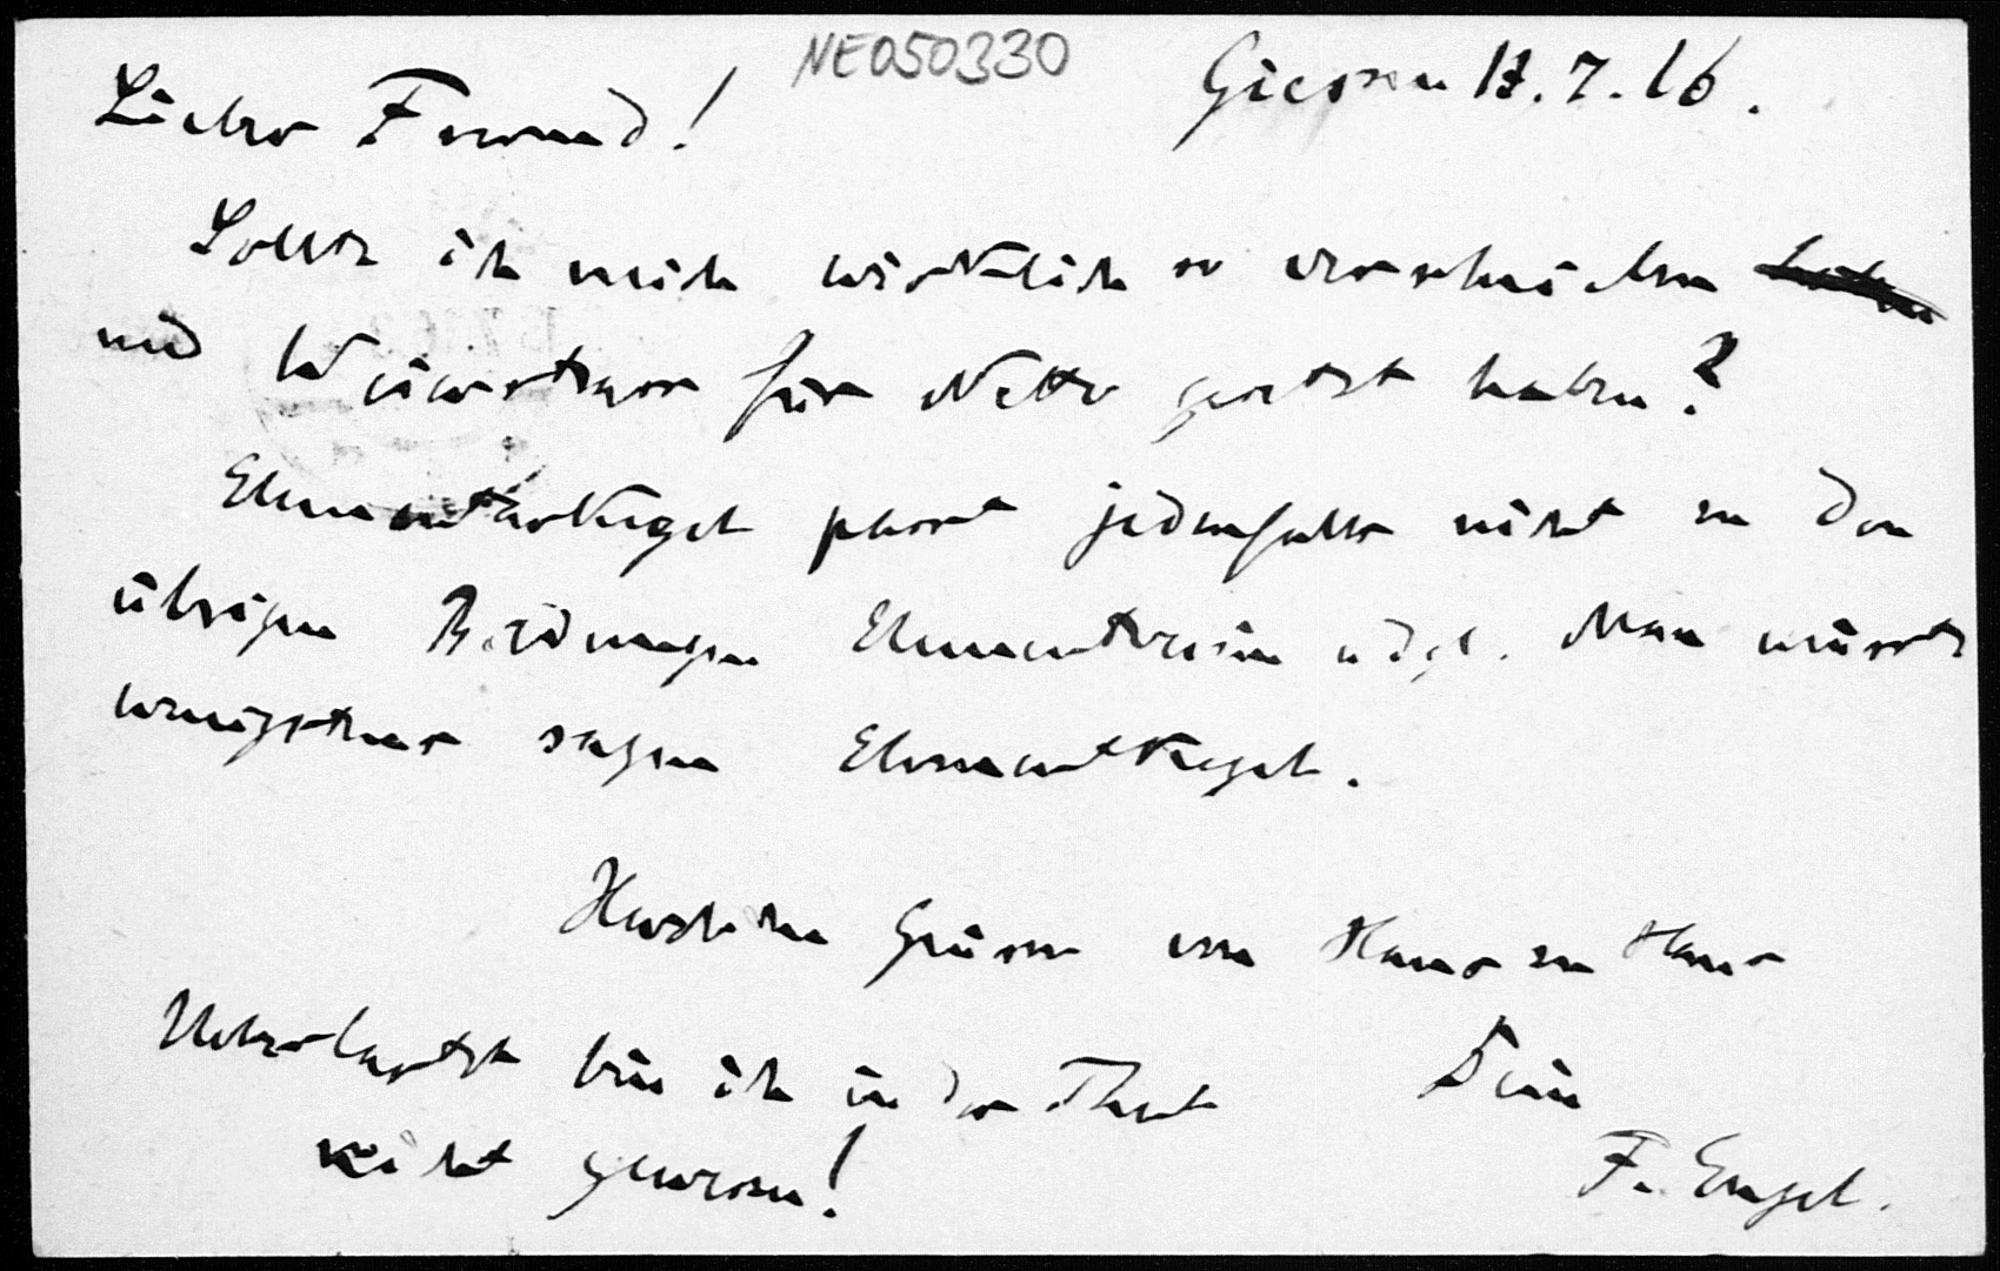 NE050330
Giessen 13.7.16.
Lieber Freund!
Sollte ich mich wirklich so verschrieben haben
und für Netto gesetzt haben?
Elementarkegel passt jedenfalls nicht zu den
übrigen Bildungen Elementverein udgl. Man müsste
wenigstens sagen Elementkegel.
Herzlichen Grüsse von Haus zu Haus
Ueberlastet bin ich in der That
nicht gewesen!
Dein
F. Engel.